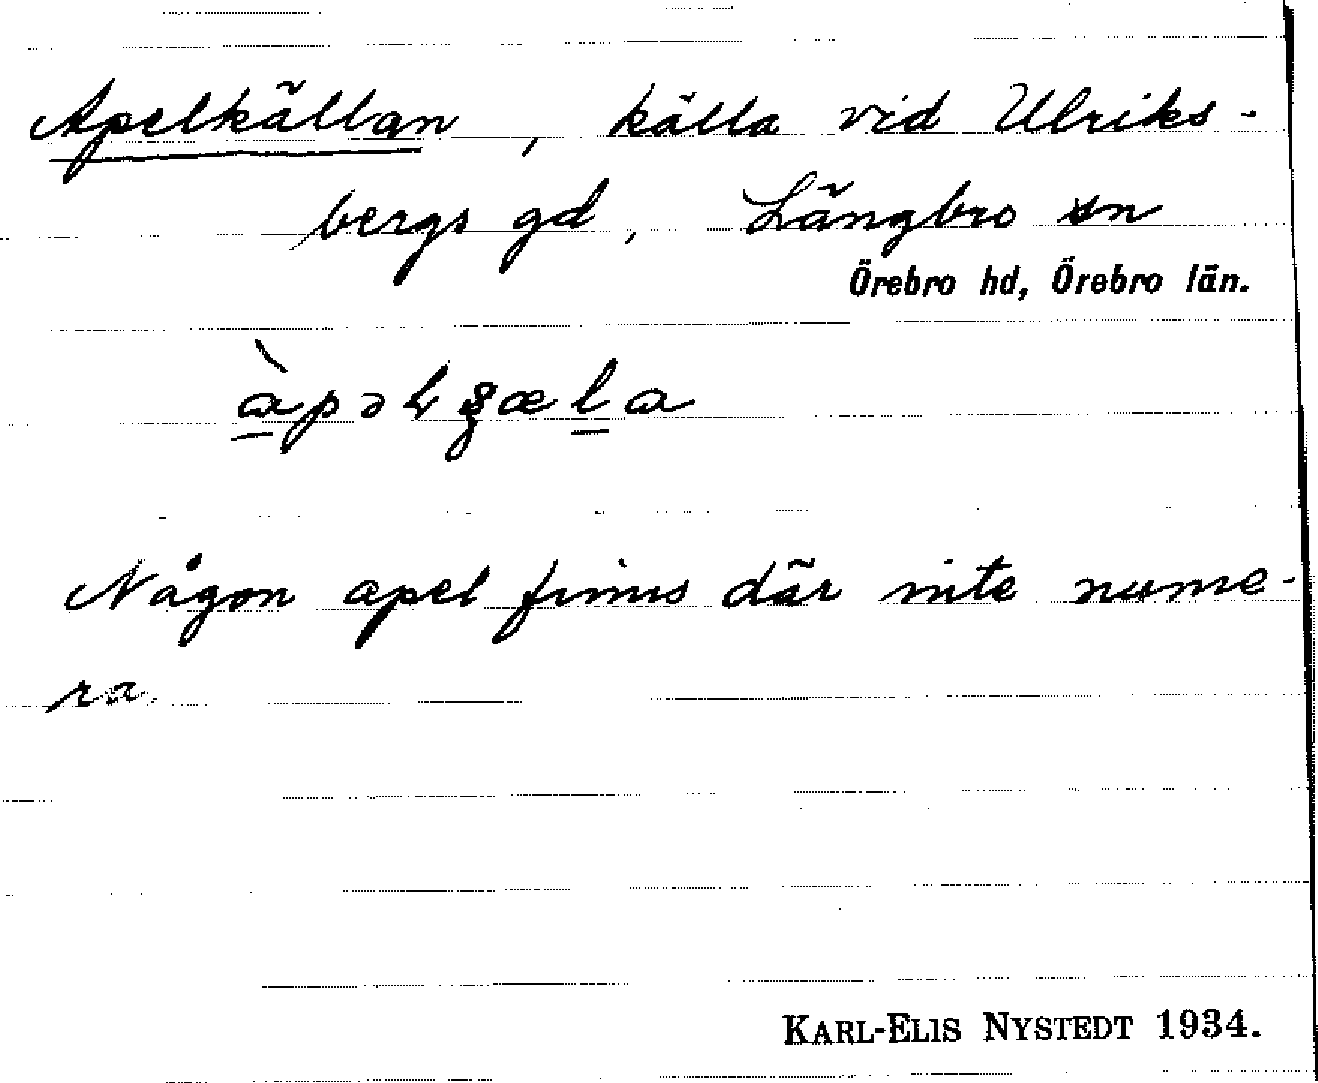 Apelkällan, källa vid Ulriks-
bergs gd, Längbro sn
Örebro hd, Örebro län.
Någon apel finns där inte nume-
ra.
KARL-ELIS NYSTEDT 1934.